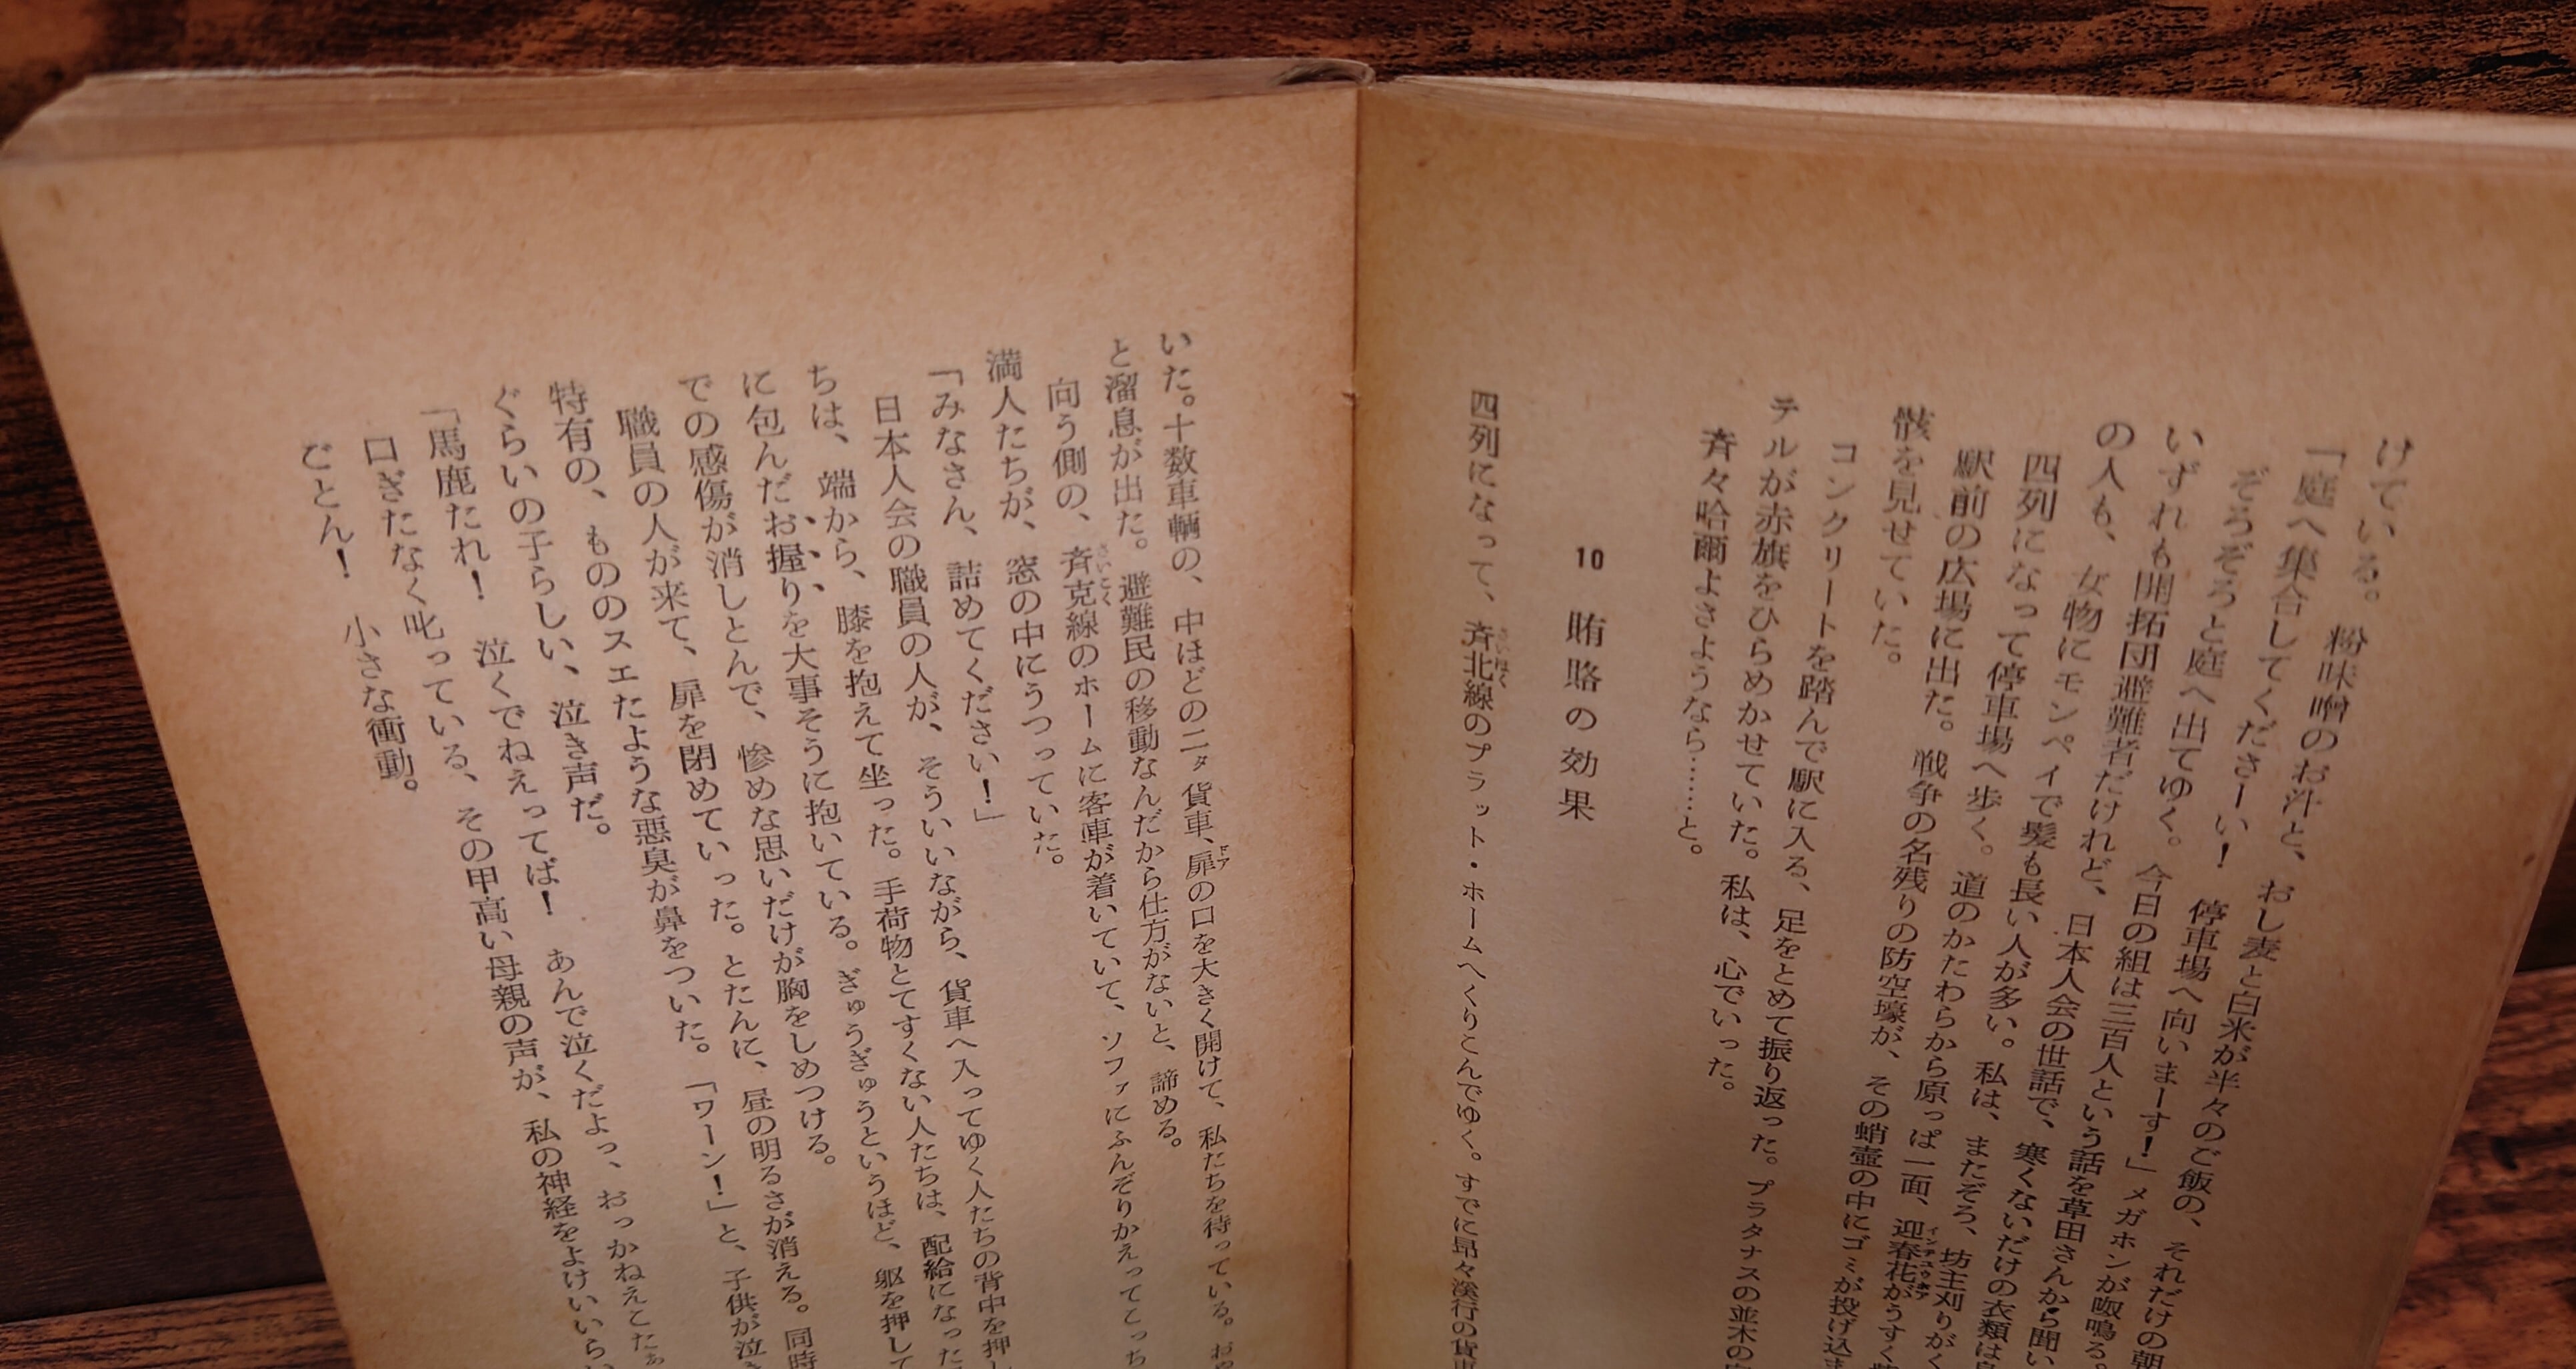 けている。粉味噌のお汁と、おし麦と白米が半々のご飯の、それだけの朝
「庭へ集合してくださーい！　停車場へ向いまーす！」メガホンが呶鳴る。
ぞろぞろと庭へ出てゆく。今日の組は三百人という話を草田さんから聞い
いずれも開拓団避難者だけれど、日本人会の世話で、寒くないだけの衣類は
の人も、女物にモンペイで髪も長い人が多い。私は、まだぞろ、坊主刈りがく
四列になって停車場へ歩く。道のかたわらから原っぱ一面、迎春花がうすく
インチュウホア
駅前の広場に出た。戦争の名残りの防空壕が、その蛸壺の中にゴミが投げ込ま
骸を見せていた。
コンクリートを踏んで駅に入る、足をとめて振り返った。プラタナスの並木の
テルが赤旗をひらめかせていた。私は、心でいった。
斉々哈爾よさようなら……と。
10　賄賂の効果
四列になって、斉北線のプラット・ホームへくりこんでゆく。すでに昂々溪行の貨車
さいほく
いた。十数車輛の、中ほどの二タ貨車、扉の口を大きく開けて、私たちを待っている。
ドア
と溜息が出た。避難民の移動なんだから仕方がないと、諦める。
向う側の、斉克線のホームに客車が着いていて、ソファにふんぞりかえってこっち
さいこく
満人たちが、窓の中にうつっていた。
「みなさん、詰めてください！」
日本人会の職員の人が、そういいながら、貨車へ入ってゆく人たちの背中を押し
ちは、端から、膝を抱えて坐った。手荷物とてすくない人たちは、配給になった
に包んだお握りを大事そうに抱いている。ぎゅうぎゅうというほど、躯を押して
での感傷が消しとんで、惨めな思いだけが胸をしめつける。
職員の人が来て、扉を閉めていった。とたんに、昼の明るさが消える。同時
特有の、もののスエたような悪臭が鼻をついた。「ワーン！」と、子供が泣き
ぐらいの子らしい、泣き声だ。
「馬鹿たれ！　泣くでねえってば！　あんで泣くだよっ、おっかねえこたぁ
口ぎたなく叱っている、その甲高い母親の声が、私の神経をよけいいらい
ごとん！　小さな衝動。